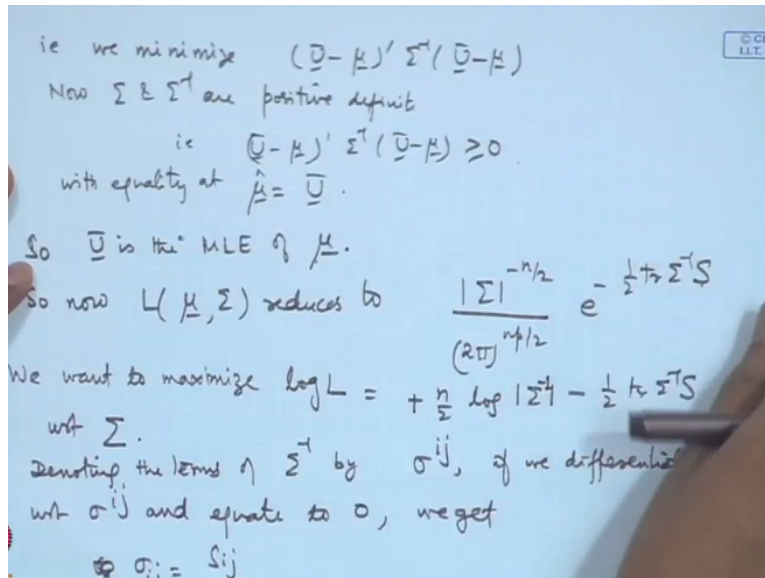 ie we minimize (U̅-μ)' Σ⁻¹(U̅-μ)
© C
I.I.T.
Now Σ & Σ⁻¹ are positive definit
ie (U̅-μ)' Σ⁻¹(U̅-μ) ≥ 0.
with equality at μ̂ = U̅.
So U̅ is the MLE of μ.
So now L(μ, Σ) reduces to |Σ|^{-n/2} / (2π)^{np/2} e^{-½ tr Σ⁻¹S}
We want to maximize log L = + n/2 log |Σ⁻¹| - ½ tr Σ⁻¹S
wrt Σ.
Denoting the terms of Σ⁻¹ by σ^{ij}, if we different
wrt σ^{ij} and equate to 0, we get
σ_{ij} = S_{ij}